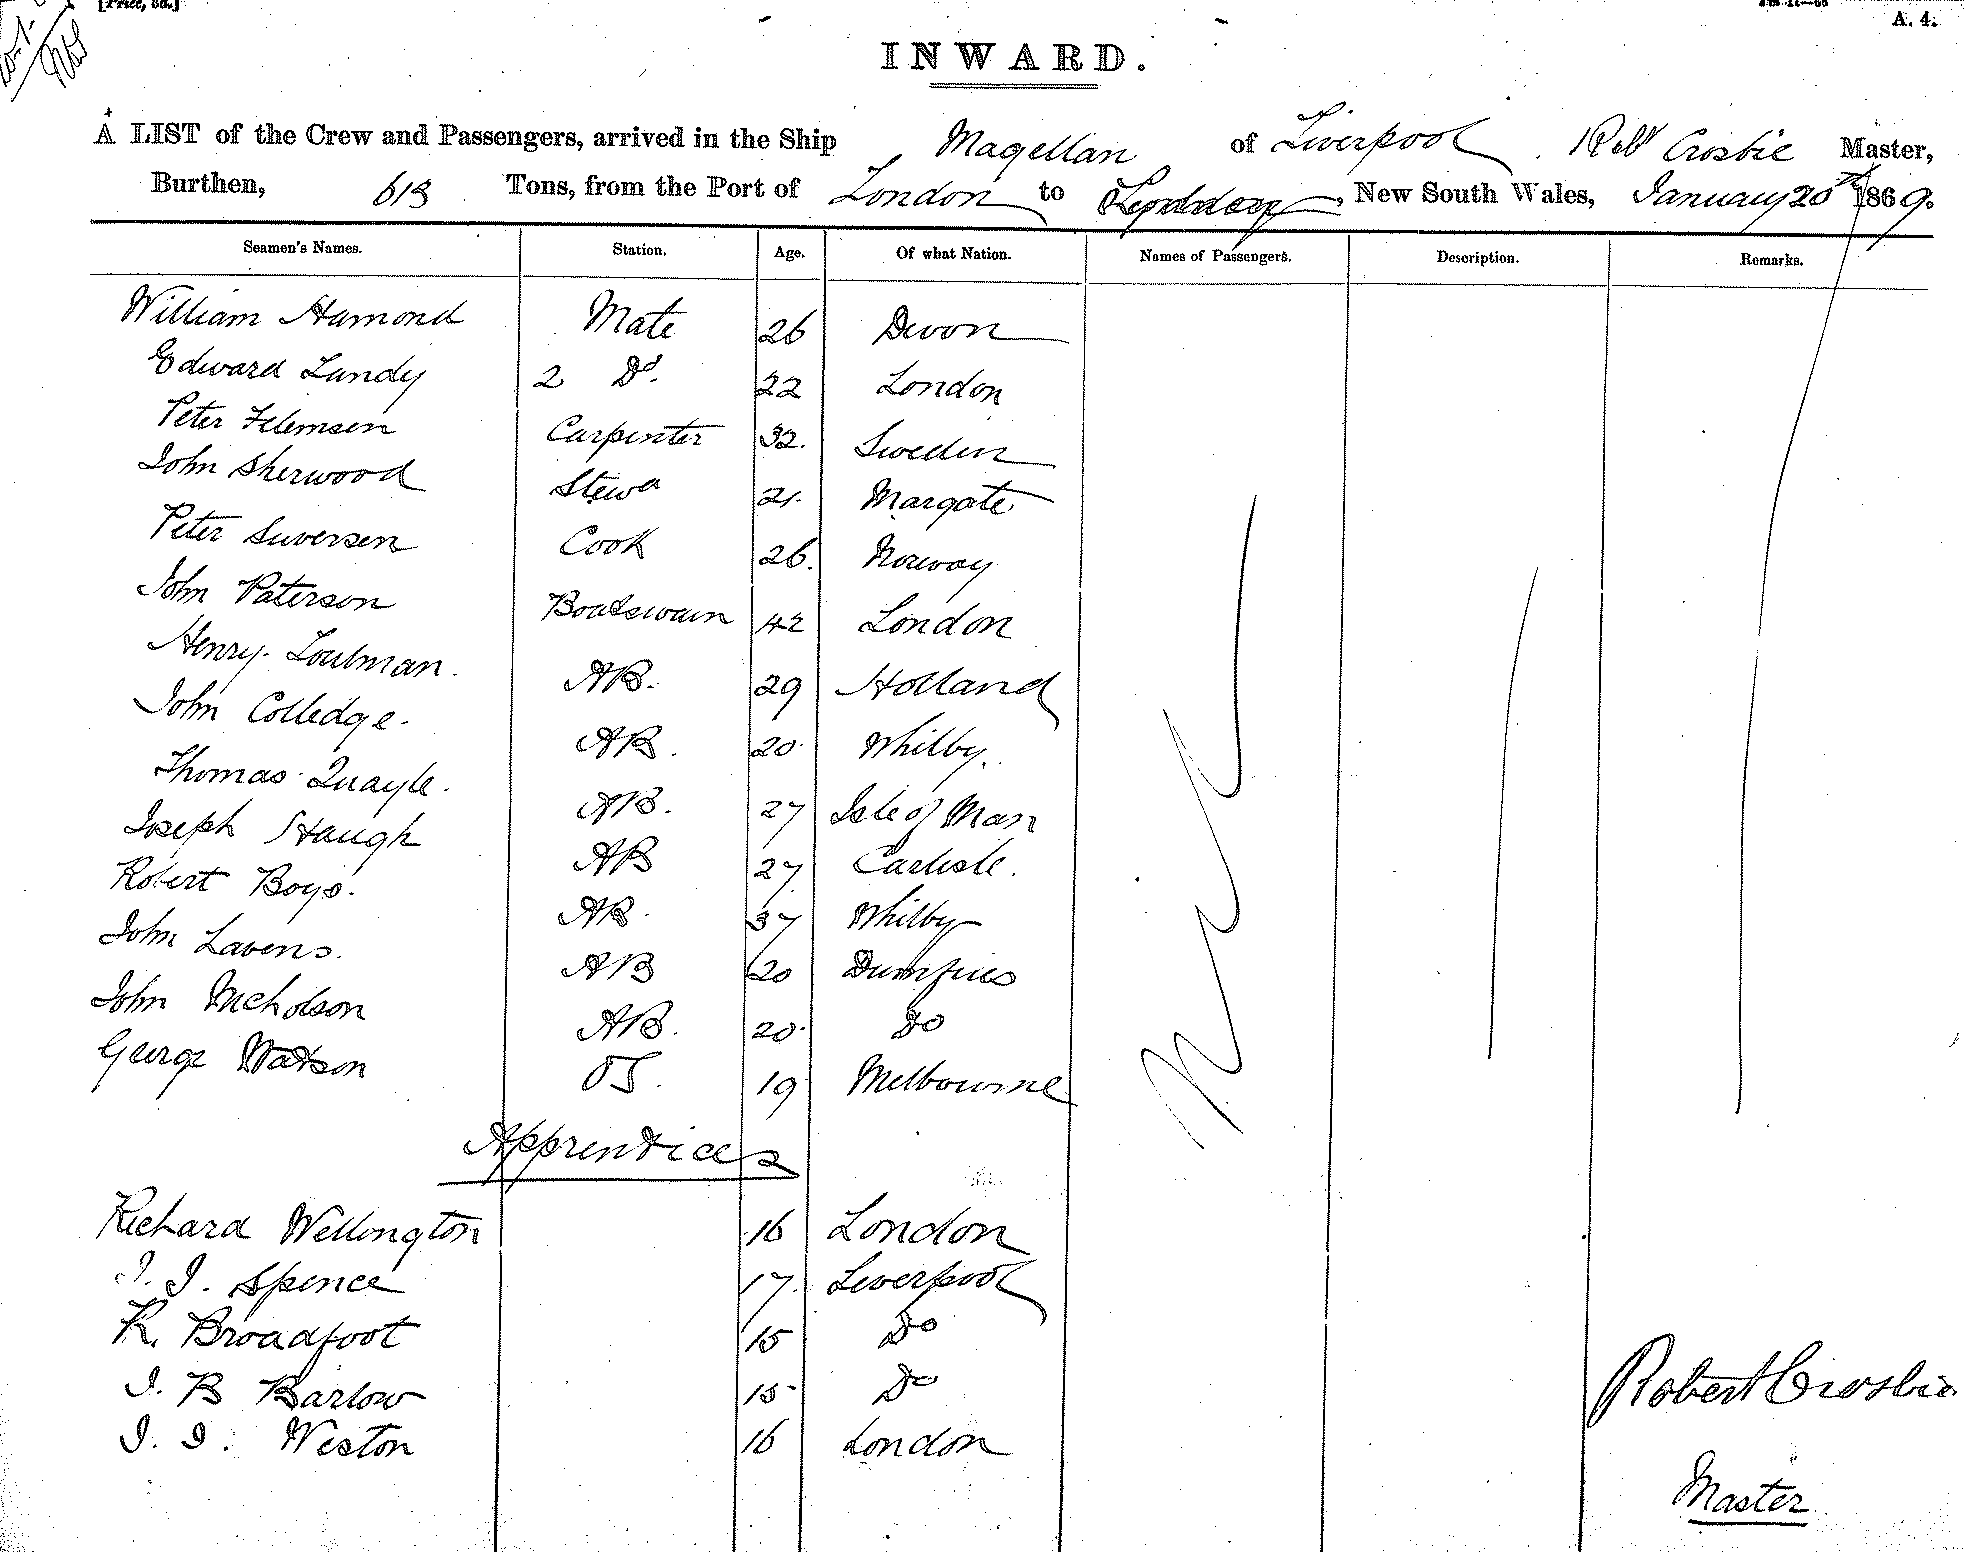 [Price, 3d.]
A. 4.
INWARD.
A LIST of the Crew and Passengers, arrived in the Ship Magellan of Liverpool Robt Crosbie Master,
Burthen, 613 Tons, from the Port of London to Sydney, New South Wales, January 20th 1869.
Seamen's Names. Station. Age. Of what Nation. Names of Passengers. Description. Remarks.
William Hamond Mate 26 Devon
Edward Lundy 2 Do. 22 London
Peter Carpenter 32. Sweden
John Sherwood Stewd 21. Margate
Peter Suversen Cook 26. Norway
John Paterson Boatswain 42 London
Henry. AB. 29 Holland
John Colledge. AB. 20. Whitby.
Thomas Quayle. AB. 27 Isle of Man
Joseph Haugh AB 27 Carlisle.
Robert Boys. AB. 37 Whitby
John Lavens. AB 20 Dumfries
John Nicholson AB. 20. Do
George Watson OS. 19 Melbourne
Apprentices
Richard Wellington 16 London
J. J. Spence 17. Liverpool
R. Broadfoot 15 Do
J. B Barlow 15 Do
J. J. Weston 16 London
Robert Crosbie
Master